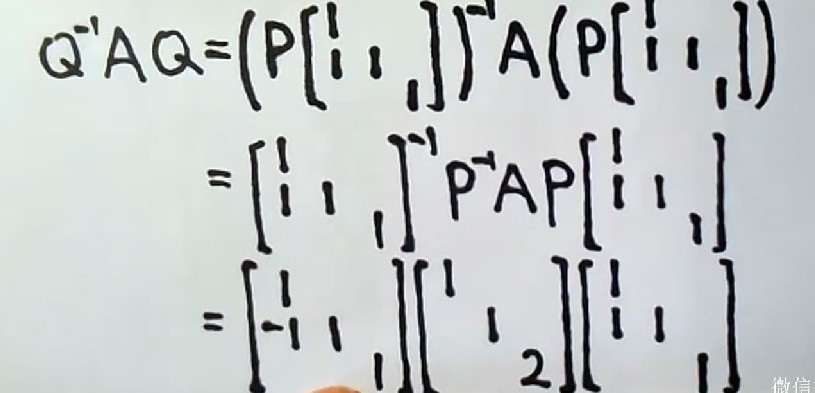 Q⁻¹AQ=(P[1; 1 1; 1])⁻¹A(P[1; 1 1; 1])
=[1; 1 1; 1]⁻¹P⁻¹AP[1; 1 1; 1]
=[1; -1 1; 1][1; 1; 2][1; 1 1; 1]
微信